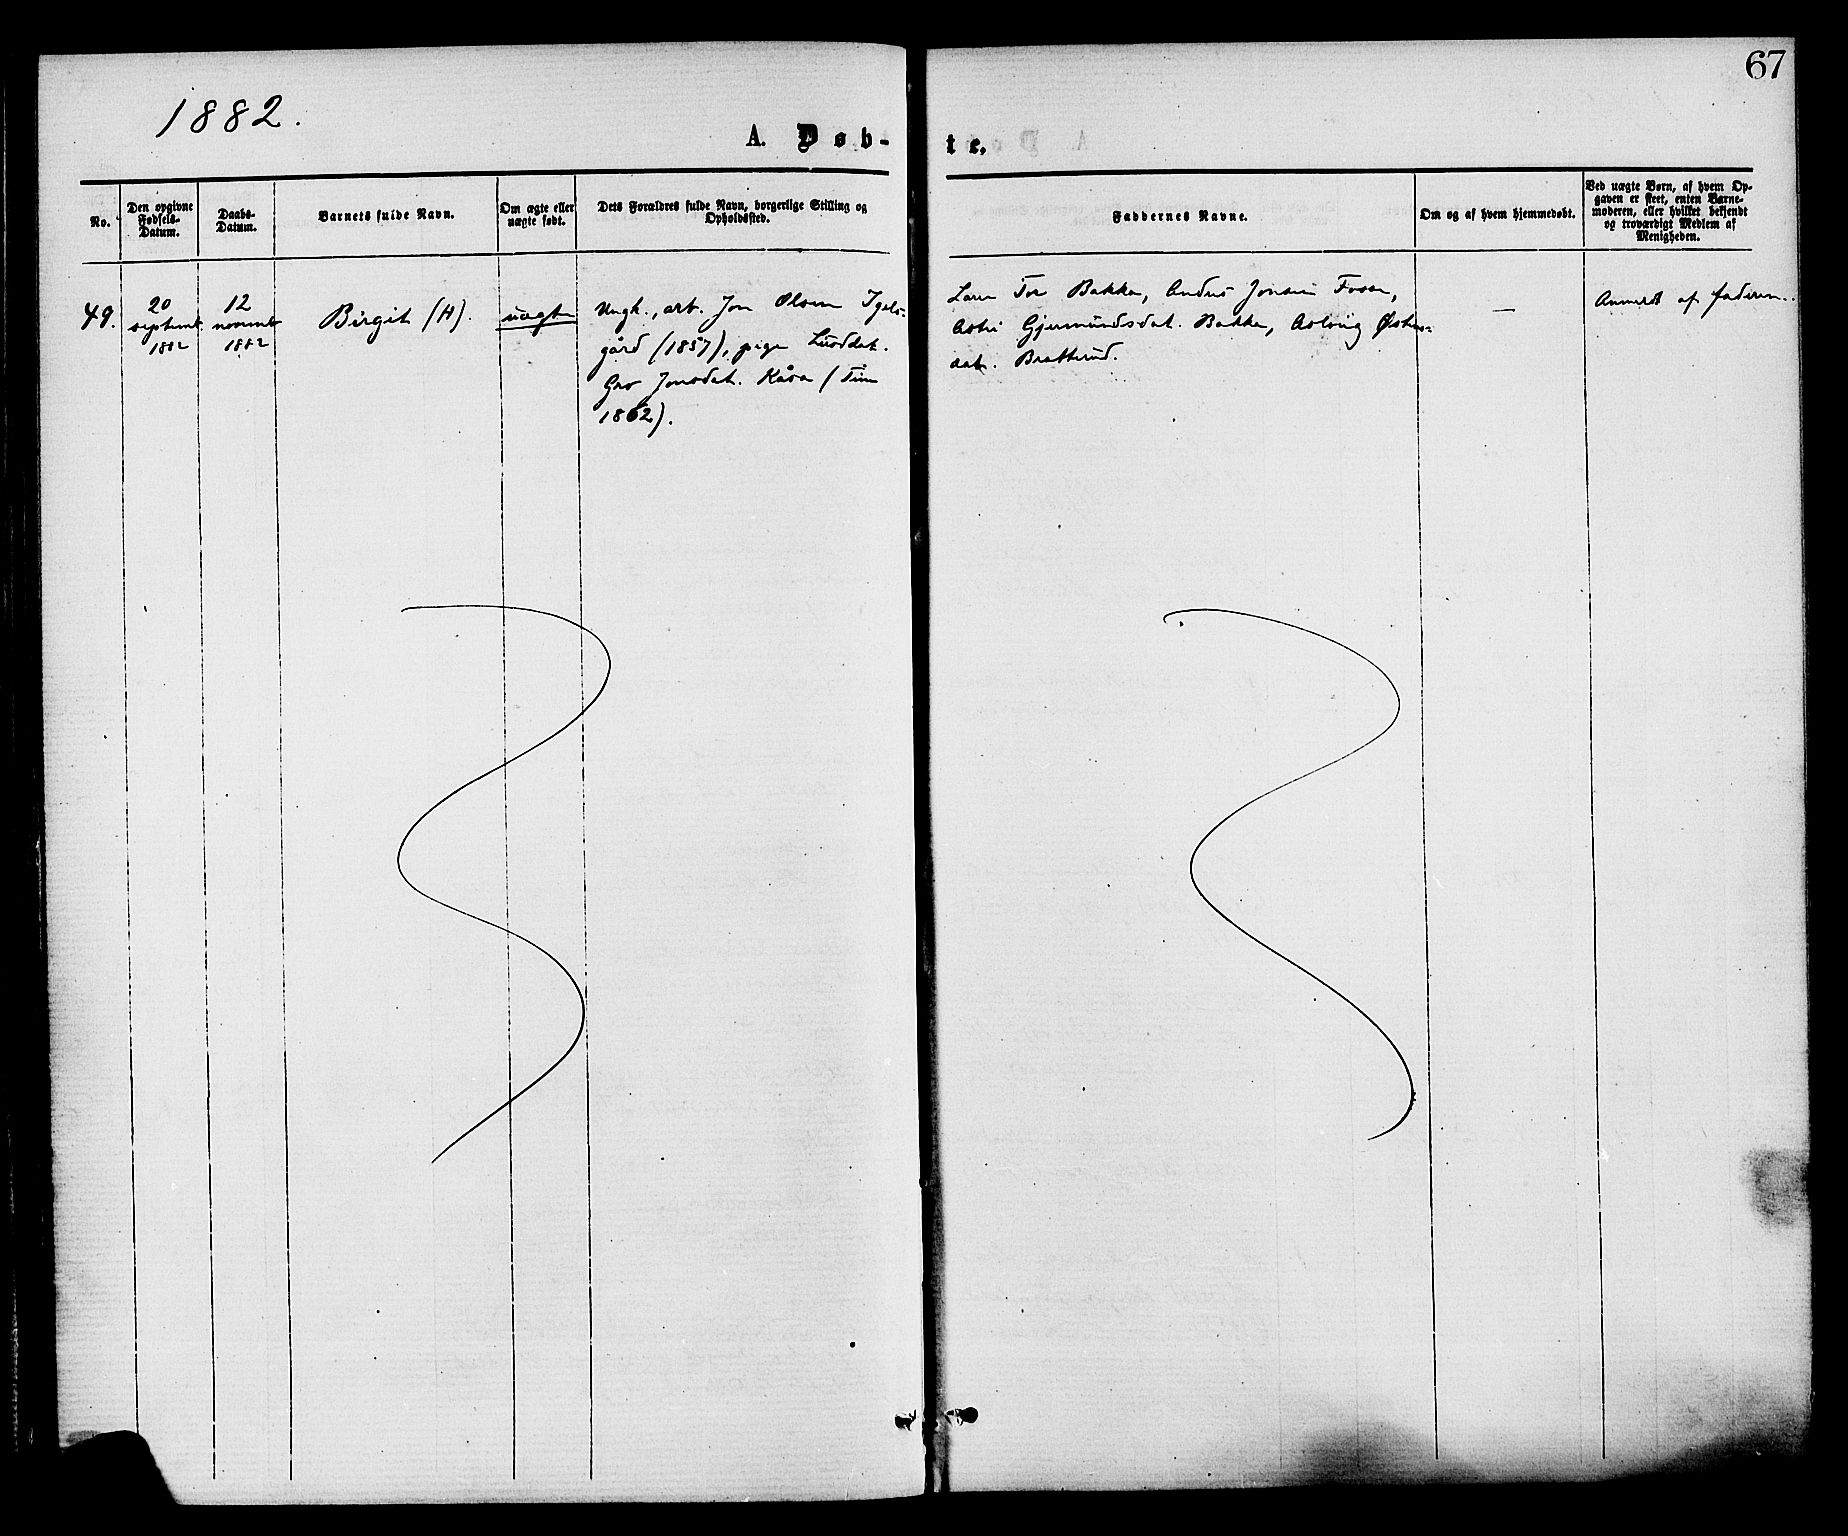 67
1882.
A. Døb-
te.
No.
Den opgivne
Fødsels-
Datum.
Daabs-
Datum.
Barnets fulde Navn.
Om ægte eller
uægte født.
Dets Forældres fulde Navn, borgerlige Stilling og
Opholdssted.
Faddernes Navne.
Om og af hvem hjemmedøbt.
Ved uægte Børn, af hvem Op-
gaven er skeet, enten Barne-
moderen, eller hvilket bekjendt
og troværdigt Medlem af
Menigheden.
49.
20
septemb.
1882
12
novemb.
1882
Birgit (H).
uægte
Ungk., arb. Jon Olsen Igels-
gård (1857), pige
Gro Jonsdat. Kåsa (Tinn
1862).
Tor Bakka, Anders Jonsen Fosse,
Astri Gjermundsdat. Bakka, Aslaug
dat. Bratterud.
—
Anmeldt af faderen.